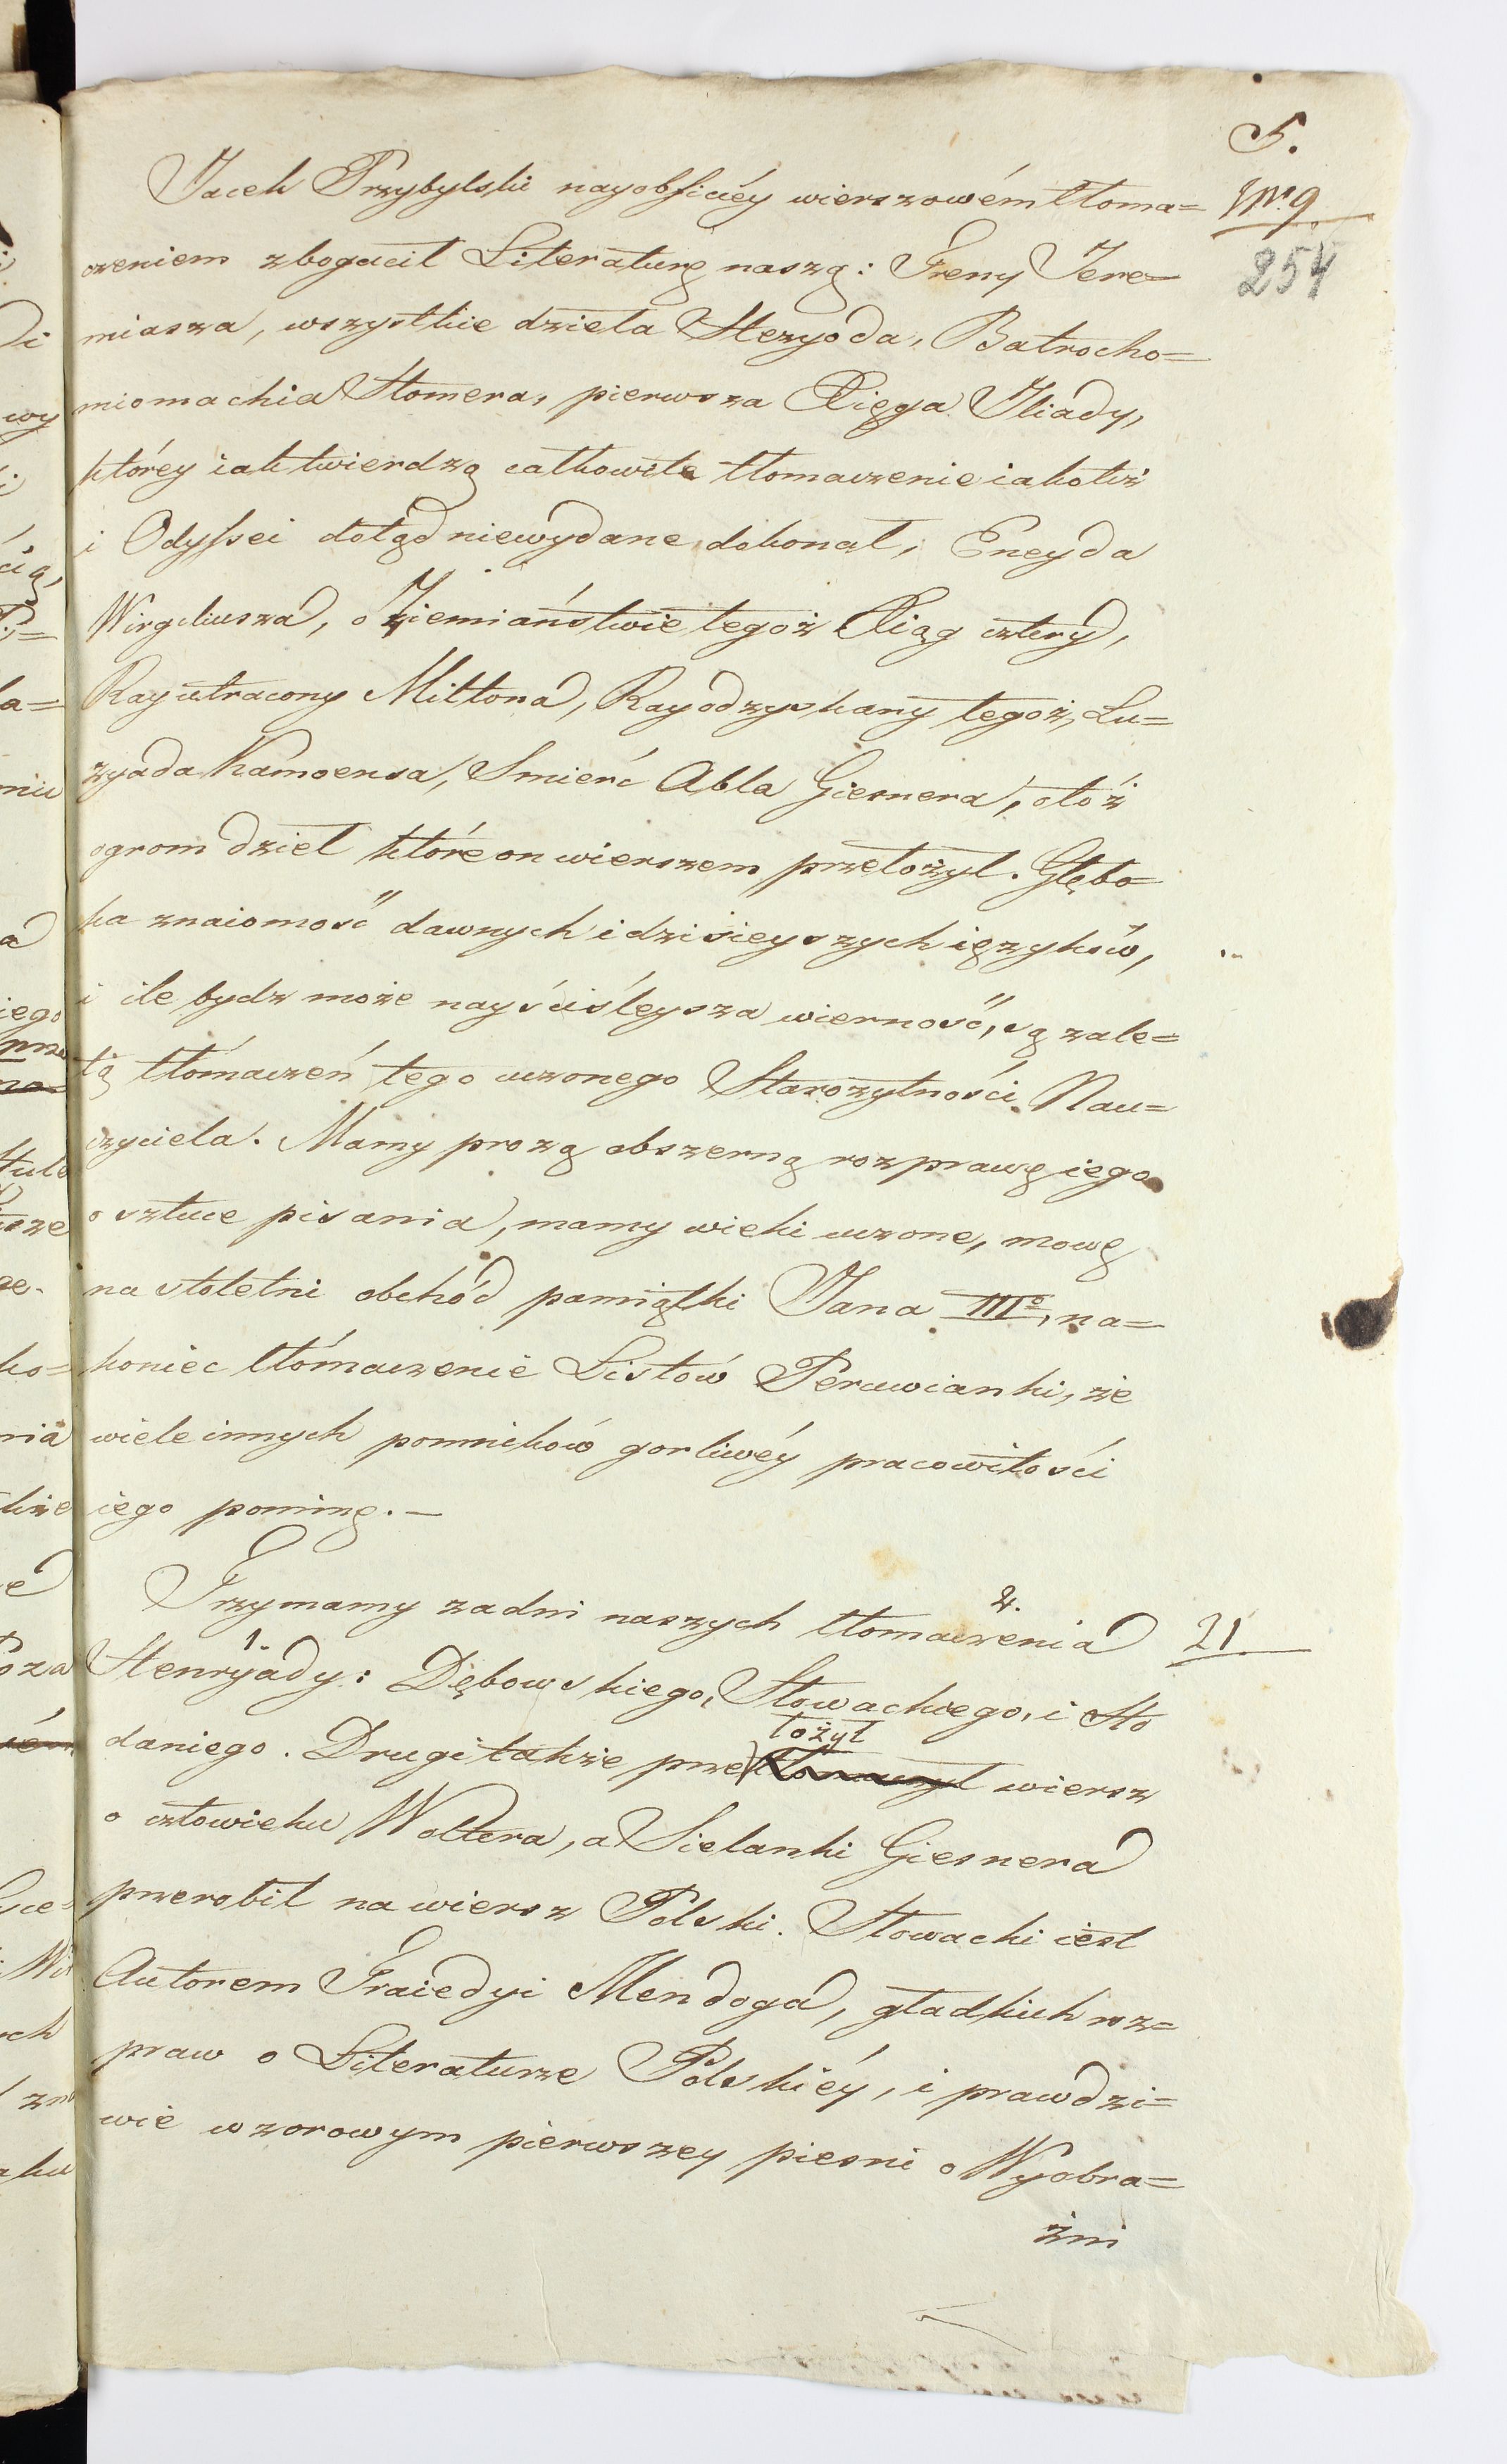 5.
Nr. 9
254
Jacek Przybylski nayobficiéy wierszowém tłoma=
czeniem zbogacił Literaturę naszą: Treny Jere=
miasza, wszystkie dzieła Hezyoda, Batrocho=
miomachia Homera, pierwsza Xięga Iliady,
któréy iak twierdzą całkowite tłomaczenie iakoteż
i Odyssei dotąd niewydane, dokonał, Eneyda
Wirgiliusza, o Ziemiaństwie tegoż Xiąg cztery,
Ray utracony Miltona, Ray odzyskany tegoż, Lu=
zyada Kamoensa, Smierć Abla Giesnera, otóż
ogrom dzieł które on wierszem przełożył. Głębo=
ka znaiomość dawnych i dzisieyszych ięzyków,
i ile bydz może nayściśleysza wierność, są zale=
tą tłómaczeń tego uczonego Starożytności Nau=
czyciela. Mamy prozą obszerną rozprawę iego
o sztuce pisania, mamy wieki uczone, mowę
na stoletni obchód pamiątki Jana IIIo, na=
koniec tłómaczenie Listów Peruwianki, że
wiele innych pomników gorliwéy pracowitości
iego pominę. —
Trzymamy za dni naszych tłomaczenia 2. 21
1. Henryady: Dębowskiego, Słowackiego, i Cho
daniego. Drugi także prze tłomaczył łożył wiersz
o człowieku Woltera, a Sielanki Giesnera
przerobił na wiersz Polski. Słowacki iest
Autorem Traiedyi Mendoga, gładkich roz=
praw o Literaturze Polskiéy, i prawdzi=
wie wzorowym pierwszey piesni o Wyobra=
źni